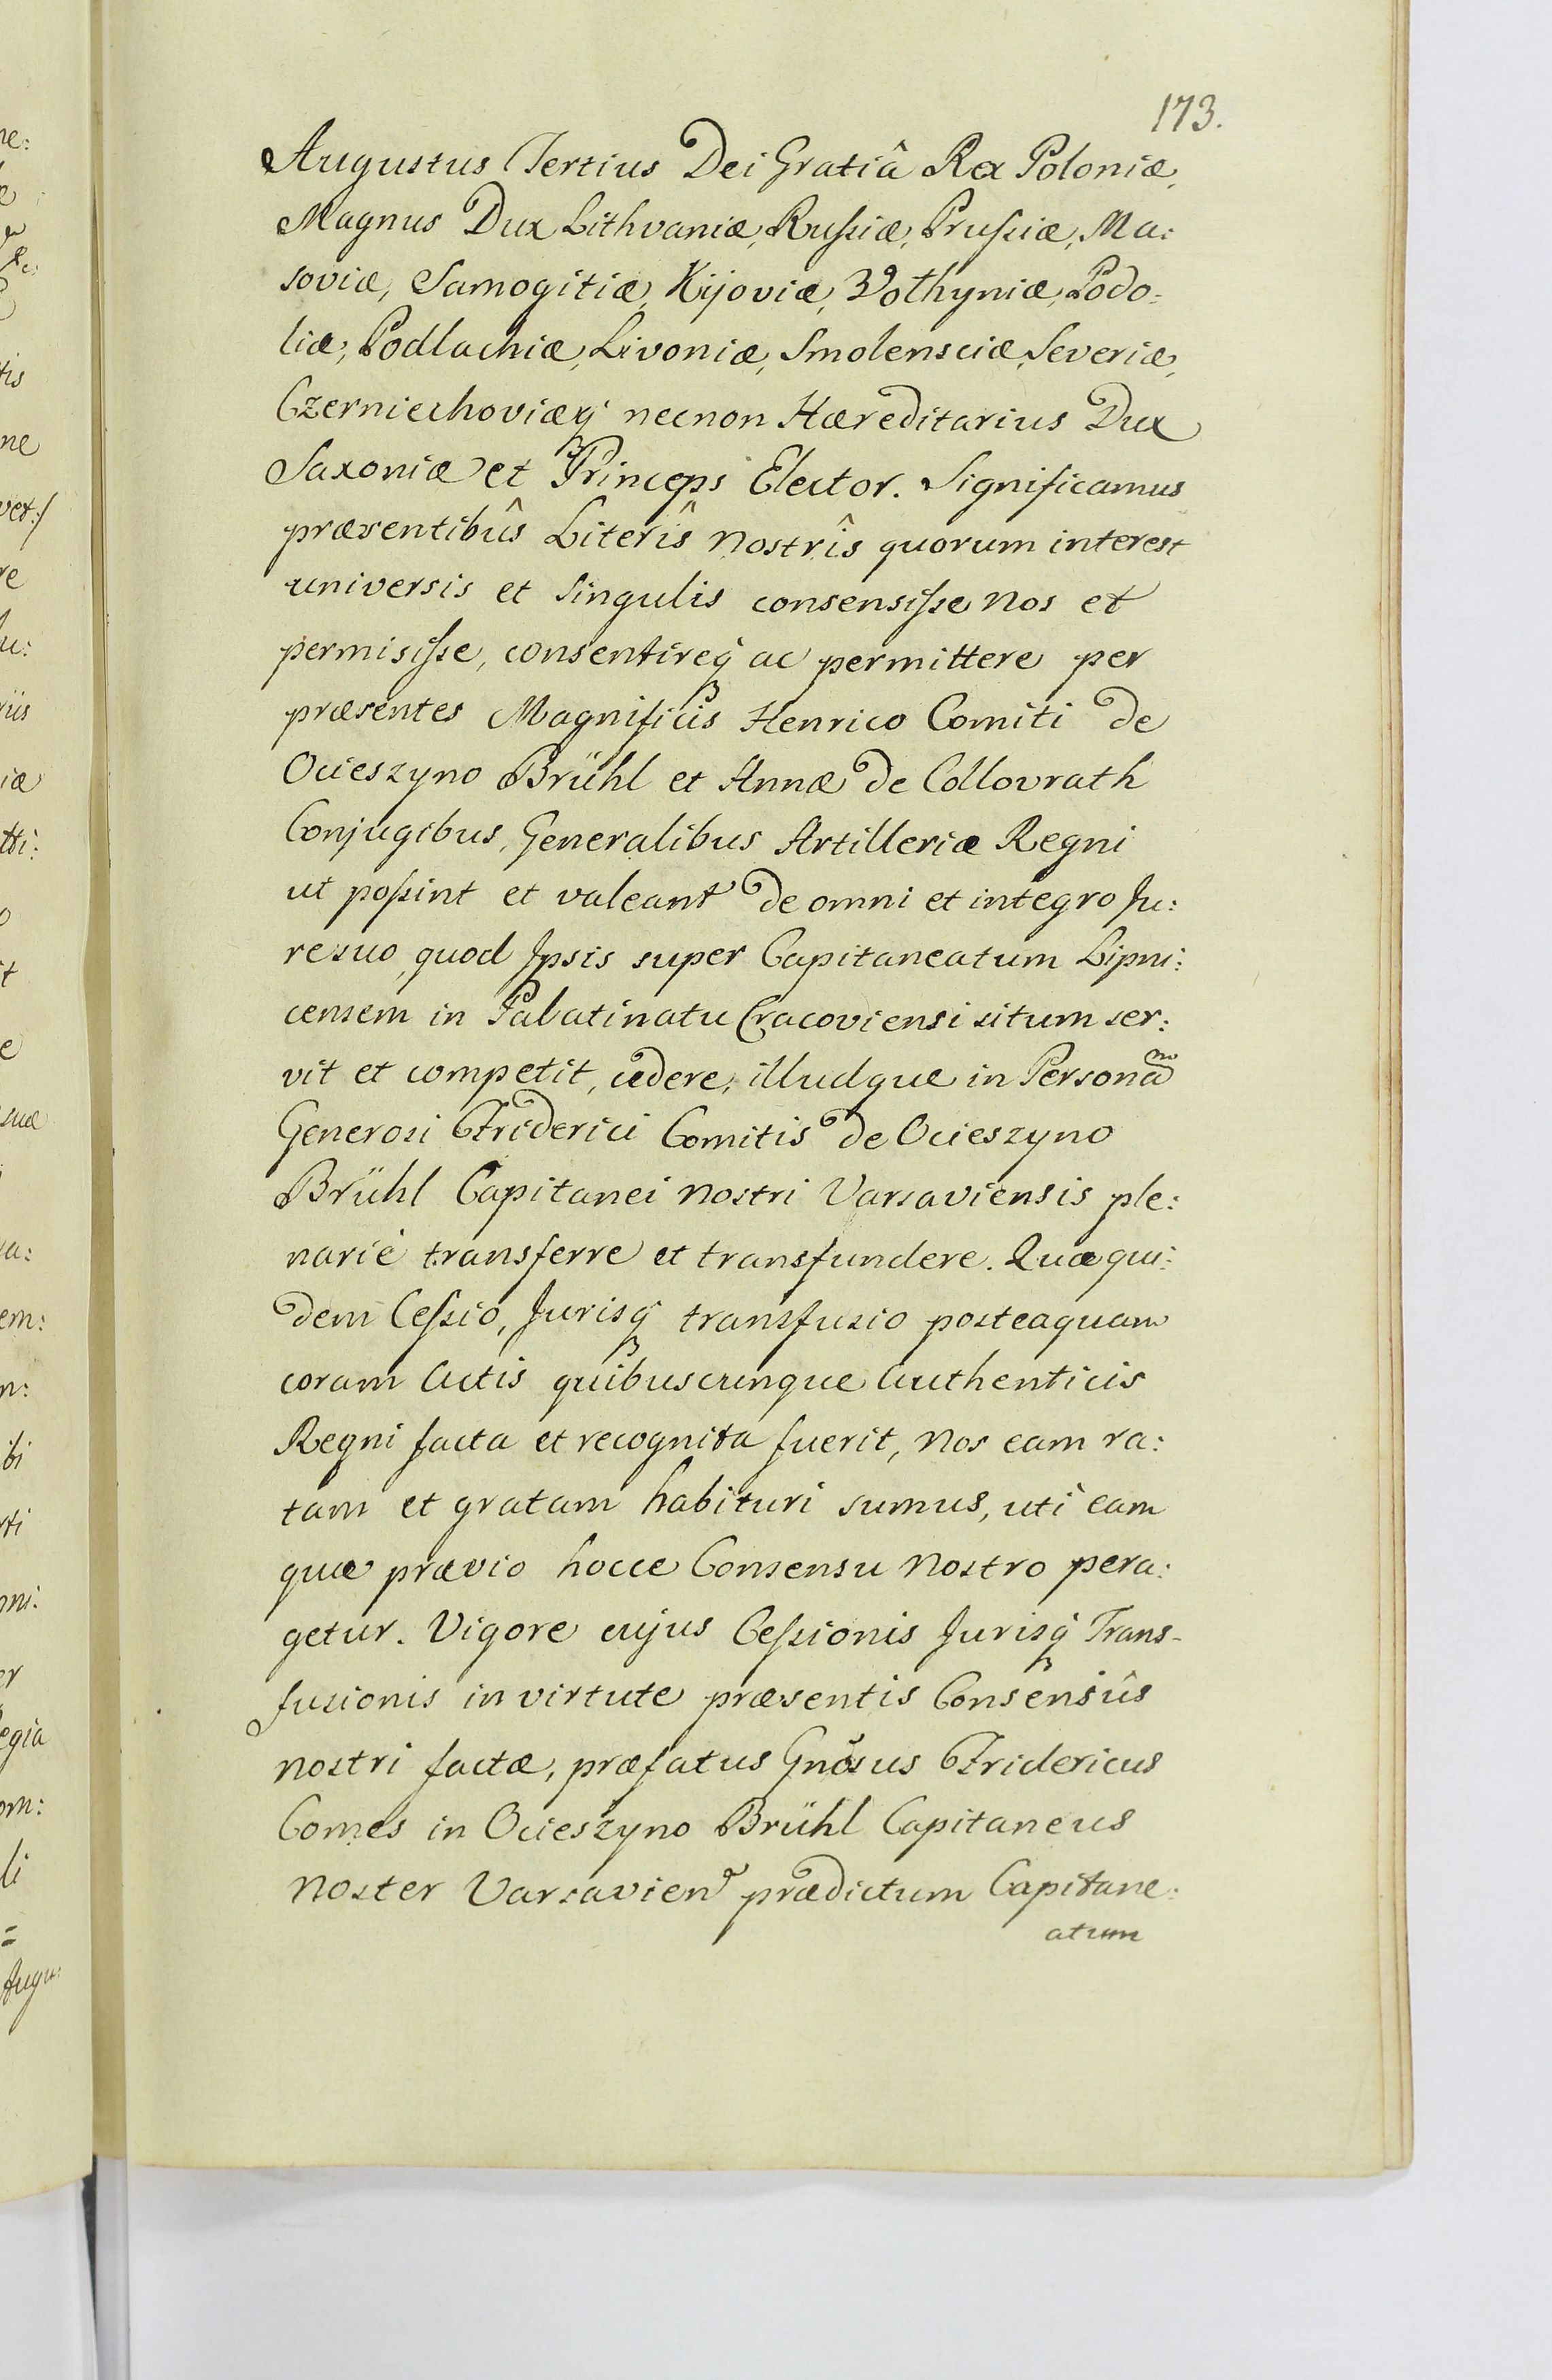 173.
Augustus Tertius Dei Gratiâ Rex Poloniæ,
Magnus Dux Lithvaniæ, Rußiæ, Prußiæ, Ma:
soviæ, Samogitiæ, Kijoviæ, Volhyniæ, Podo=
liæ, Podlachiæ, Livoniæ, Smolensciæ, Severiæ,
Czerniechoviæq₃ necnon Hæreditarius Dux
Saxoniæ et Princeps Elector. Significamus
præsentibûs Literîs nostrîs quorum interest
universis et singulis consensiſse nos et
permisiſse, consentireq₃ ac permittere per
præsentes Magnificis Henrico Comiti de
Ocieszyno Brühl et Annæ de Collovrath
Conjugibus, Generalibus Artilleriæ Regni
ut poßint et valeant de omni et integro Ju:
re suo, quod Ipsis super Capitaneatum Lipni:
censem in Palatinatu Cracoviensi situm ser:
vit et competit, cedere, illudque in Personam
Generosi Friderici Comitis de Ocieszyno
Brühl Capitanei nostri Varsaviensis ple:
narie transferre et transfundere. Quæ qui:
dem Ceßio, Jurisq₃ transfusio posteaquam
coram Actis quibuscunque Authenticis
Regni facta et recognita fuerit, nos eam ra:
tam et gratam habituri sumus, uti eam
quæ prævio hocce Consensu nostro pera:
getur. Vigore cujus Ceßionis Jurisq₃ Trans-
fusionis in virtute præsentis Consensûs
nostri factæ, præfatus Gnosus Fridericus
Comes in Ocieszyno Brühl Capitaneus
noster Varsavien præedictum Capitane:
atum